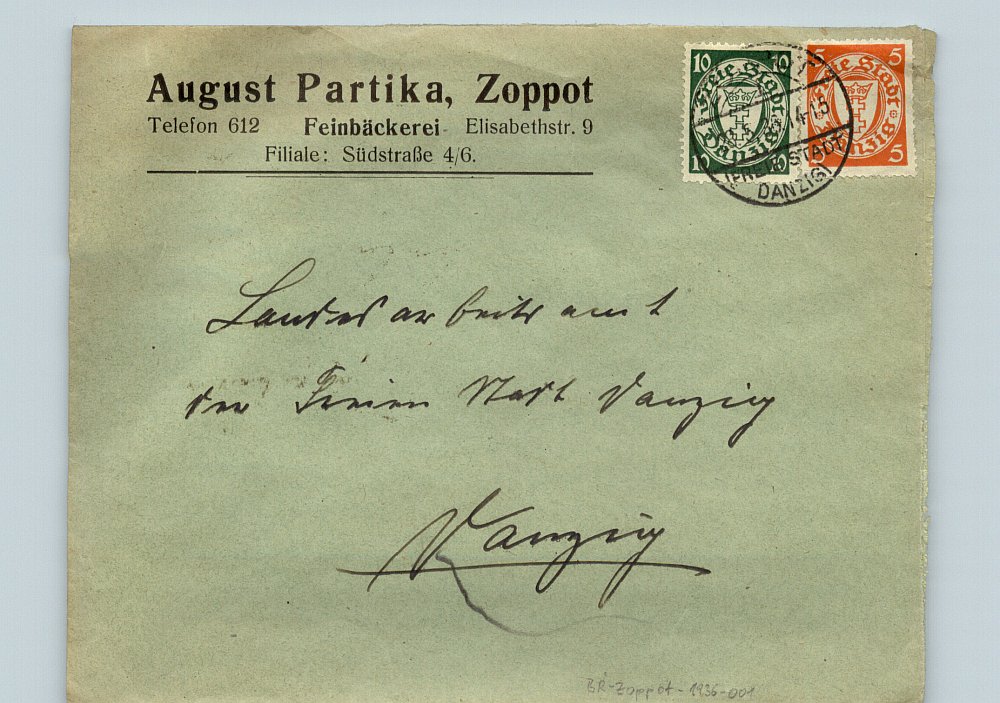 August Partika, Zoppot
Telefon 612 Feinbäckerei Elisabethstr. 9
Filiale: Südstraße 4/6.
10 10
Freie Stadt
Danzig
10 10
5 5
Freie Stadt
Danzig
5 5
4-1.5
(FREIE STADT
DANZIG)
Landesarbeitsamt
der Freien Stadt Danzig
Danzig
BR-Zoppot-1936-001